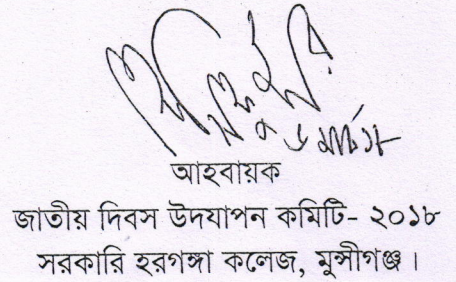 ৬ মার্চ ১৮
আহবায়ক
জাতীয় দিবস উদযাপন কমিটি- ২০১৮
সরকারি হরগঙ্গা কলেজ, মুন্সীগঞ্জ।